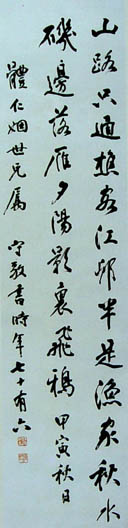 山路只通樵客江邨半是漁家秋水
磯邊落雁夕陽影裏飛鴉甲寅秋日
體仁姻世兄屬 守敬書時年七十有六